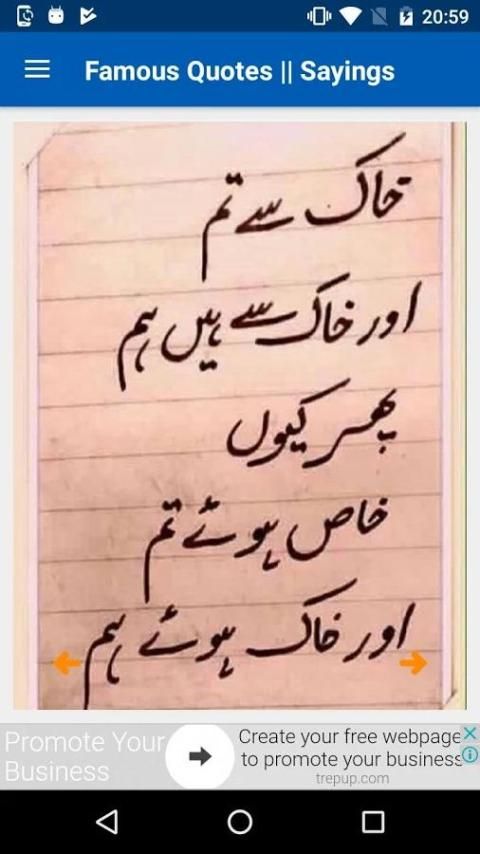 20:59
Famous Quotes || Sayings
خاک سے تم
اور خاک سے ہیں ہم
پھر کیوں
خاص ہوئے تم
اور خاک ہوئے ہم
Promote Your
Business
Create your free webpage
to promote your business
trepup.com